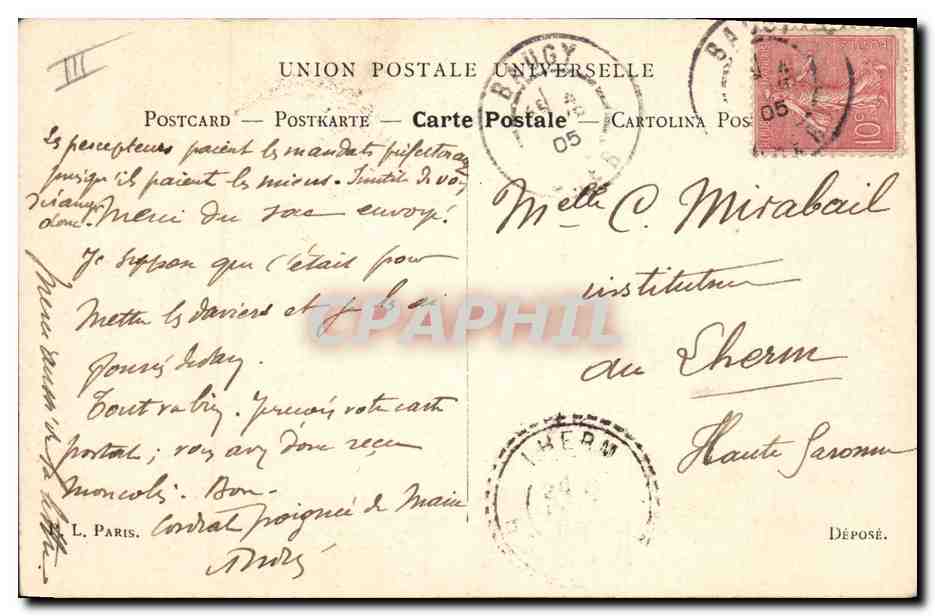 III
UNION POSTALE UNIVERSELLE
POSTCARD — POSTKARTE — Carte Postale — CARTOLINA POS
BAUGY
05
BAUGY
05
10c
les percepteurs paient les mandats
puisqu'ils paient les miens. Inutile de vous
déranger
donc. Merci du sac envoyé!
Je suppose que c'était pour
Mettre les daviers et je les ai
fourrés dedans.
Tout va bien. Je reçois votre carte
postale; vous avez donc reçu
Mon colis. Bon.
Cordiale poignée de Main
André
Merci aussi de la lettre.
Melle C. Mirabail
institutrice
au Lherm
Haute Garonne
LHERM
L. PARIS.
DÉPOSÉ.
CPAPHIL